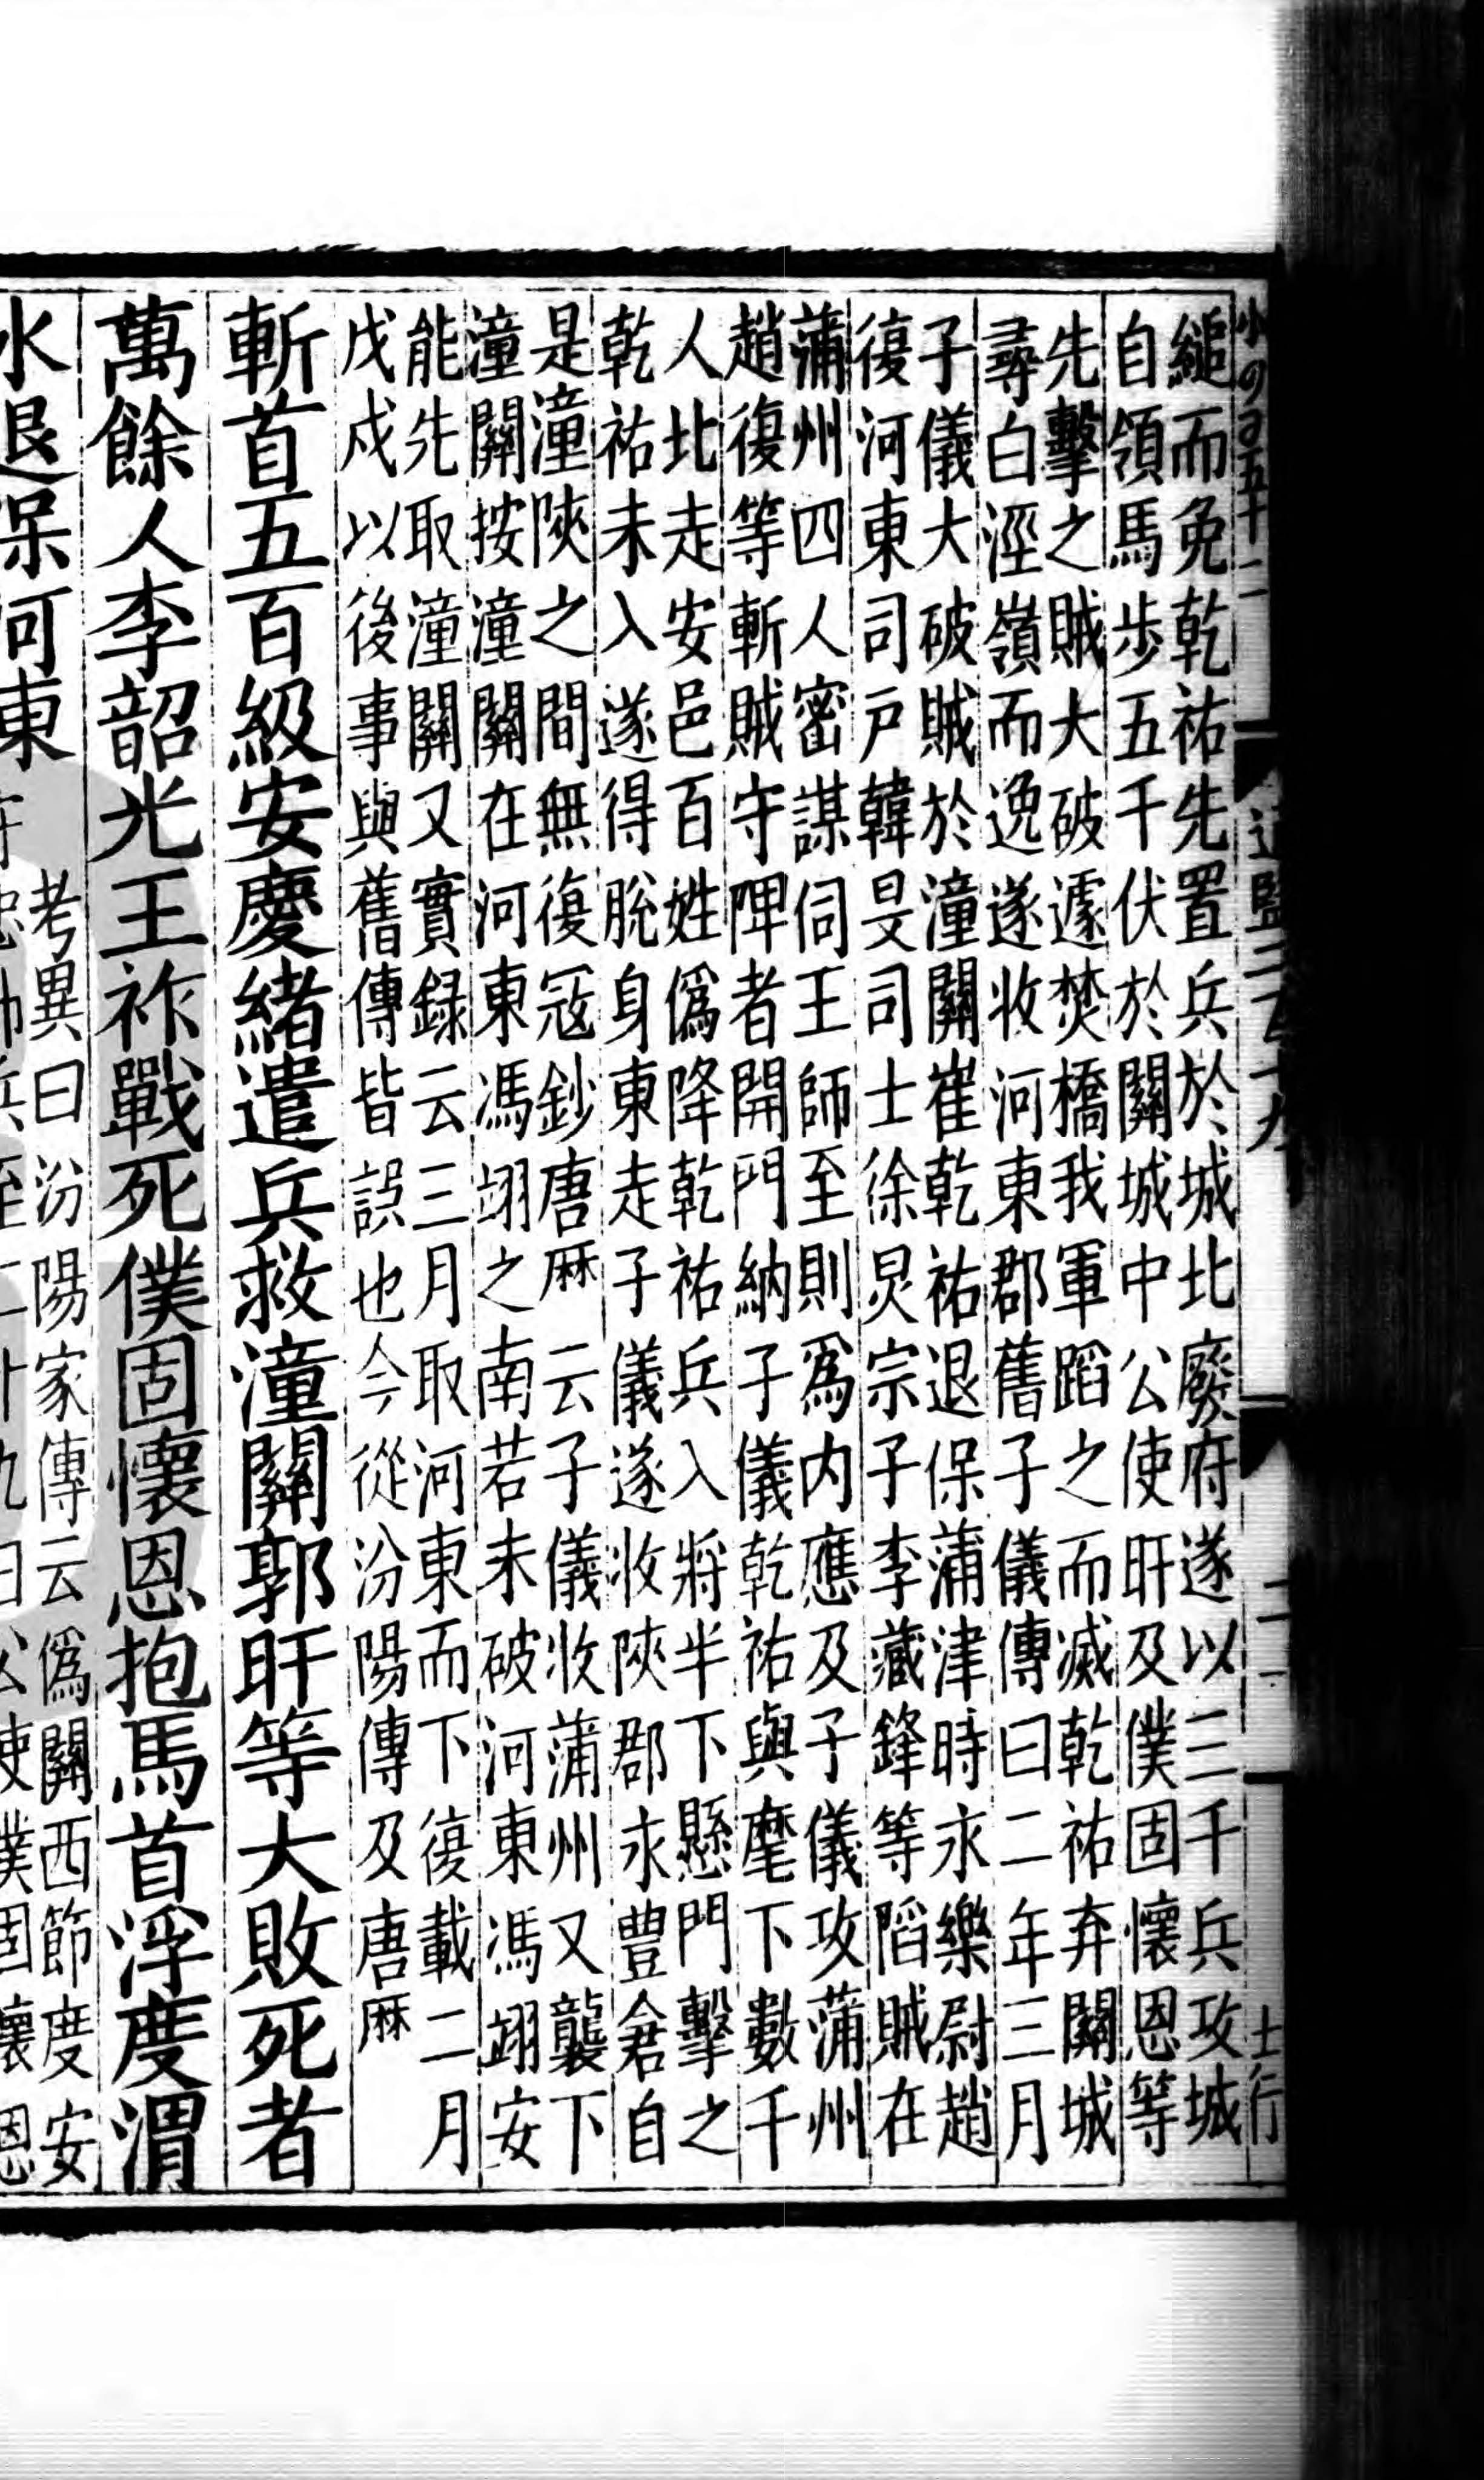 縋而免乾祐先置兵於城北廢府遂以三千兵攻城
自領馬步五千伏於關城中公使旰及僕固懷恩等
先擊之賊大破遽焚橋我軍蹈之而滅乾祐弃關城
尋白涇嶺而逸遂收河東郡舊子儀傳曰二年三月
子儀大破賊於潼關崔乾祐退保蒲津時永樂尉趙
復河東司戶韓旻司士徐炅宗子李藏鋒等陷賊在
蒲州四人密謀伺王師至則為内應及子儀攻蒲州
趙復等斬賊守陴者開門納子儀乾祐與麾下數千
人北走安邑百姓偽降乾祐兵入將半下懸門擊之
乾祐未入遂得脫身東走子儀遂收陝郡永豐倉自
是潼陝之間無復寇鈔唐曆云子儀收蒲州又襲下
潼關按潼關在河東馮翊之南若未破河東馮翊安
能先取潼關又實録云三月取河東而下復載二月
戊戌以後事與舊傳皆誤也今從汾陽傳及唐曆
斬首五百級安慶緒遣兵救潼關郭旰等大敗死者
萬餘人李韶光王祚戰死僕固懷恩抱馬首浮度渭
水退保河東
考異曰汾陽家傳云偽關西節度安